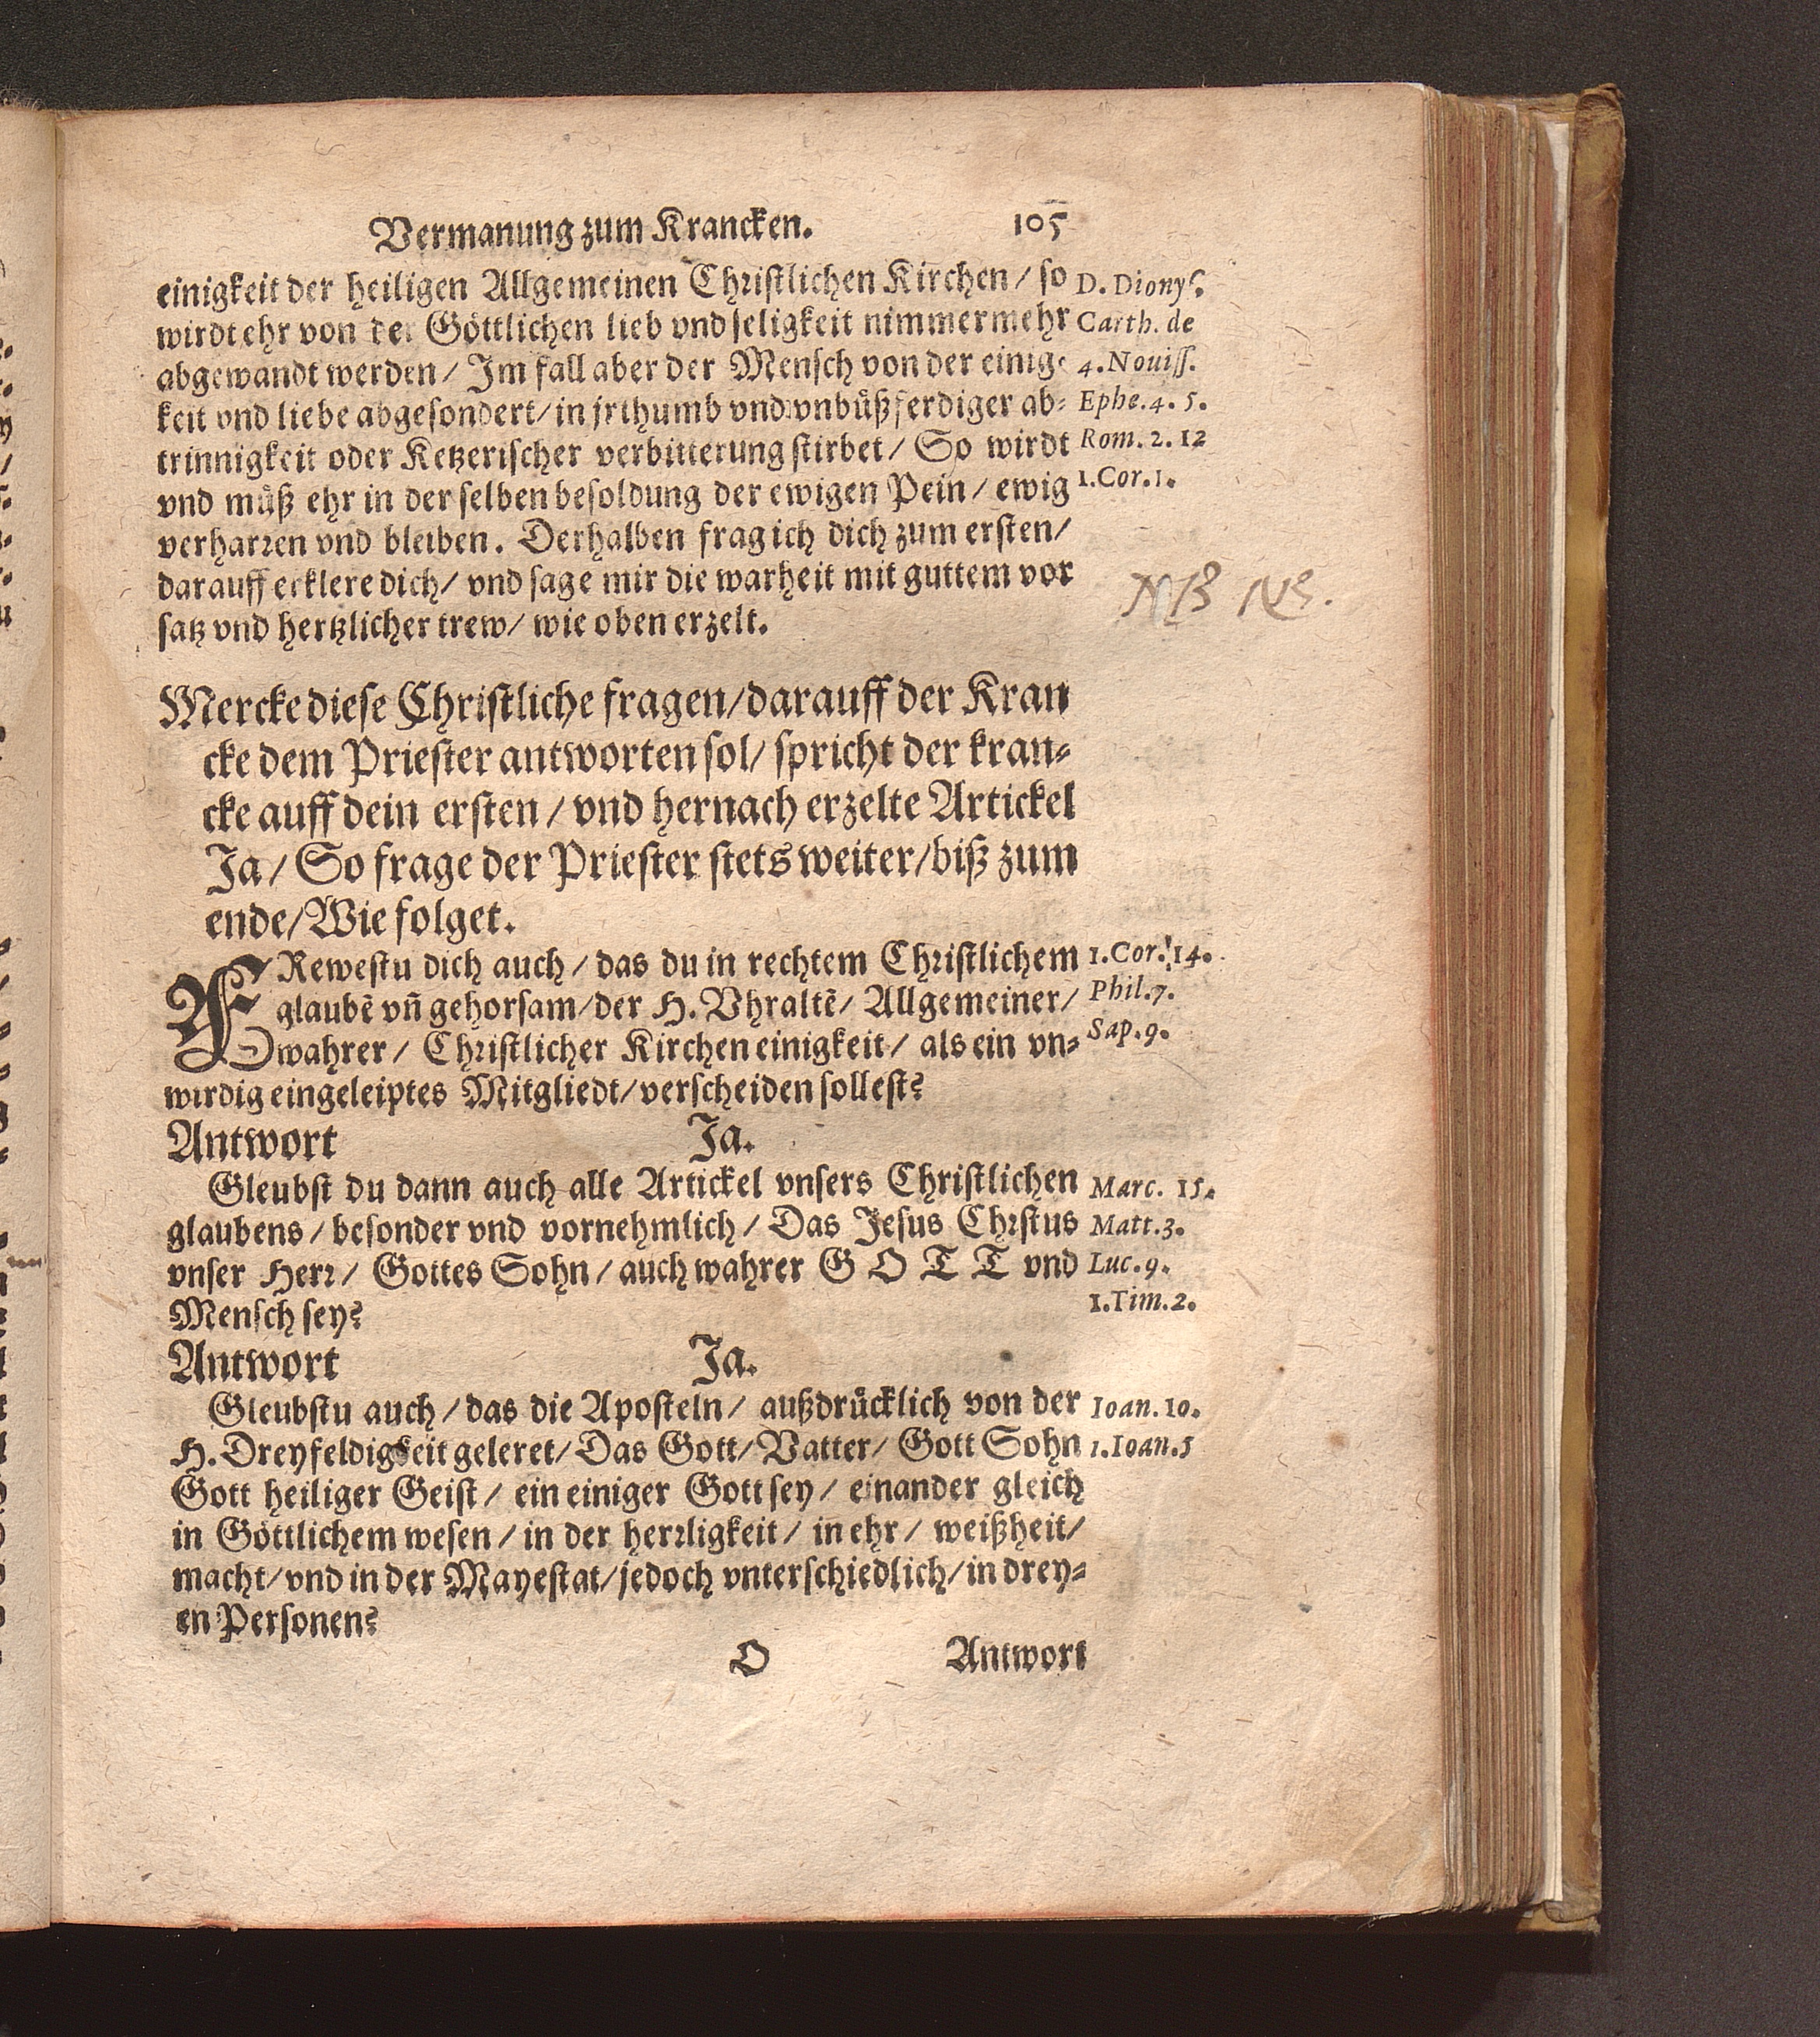 Vermanung zum Krancken. 105
einigkeit der heiligen Allgemeinen Christlichen Kirchen / so
wirdt ehr von der Göttlichen lieb vnd seligkeit nimmermehr
abgewandt werden / Im fall aber der Mensch von der einig-
keit vnd liebe abgesondert / in jrthumb vnd vnbüßferdiger ab-
trinnigkeit oder Ketzerischer verbitterung stirbet / So wirdt
vnd müß ehr in der selben besoldung der ewigen Pein / ewig
verharren vnd bleiben. Derhalben frag ich dich zum ersten /
darauff erklere dich / vnd sage mir die warheit mit guttem vor
satz vnd hertzlicher trew / wie oben erzelt.
D. Dionys.
Carth. de
4. Nouiss.
Ephe. 4. 5.
Rom. 2. 12
1. Cor. 1.
Mercke diese Christliche fragen / darauff der Kran
cke dem Priester antworten sol / spricht der kran-
cke auff dein ersten / vnd hernach erzelte Artickel
Ja / So frage der Priester stets weiter / biß zum
ende / Wie folget.
FRewestu dich auch / das du in rechtem Christlichem
glaubē vñ gehorsam / der H. Vhraltē / Allgemeiner /
wahrer / Christlicher Kirchen einigkeit / als ein vn-
wirdig eingeleiptes Mitgliedt / verscheiden sollest?
1. Cor. 14.
Phil. 7.
Sap. 9.
Antwort Ja.
Gleubst du dann auch alle Artickel vnsers Christlichen
glaubens / besonder vnd vornehmlich / Das Jesus Chrstus
vnser Herr / Gottes Sohn / auch wahrer G O T T vnd
Mensch sey?
Marc. 15.
Matt. 3.
Luc. 9.
1. Tim. 2.
Antwort Ja.
Gleubstu auch / das die Aposteln / außdrücklich von der
H. Dreyfeldigkeit geleret / Das Gott / Vatter / Gott Sohn
Gott heiliger Geist / ein einiger Gott sey / einander gleich
in Göttlichem wesen / in der herrligkeit / in ehr / weißheit /
macht / vnd in der Mayestat / jedoch vnterschiedlich / in drey-
en Personen?
Ioan. 10.
1. Ioan. 5
O Antwort